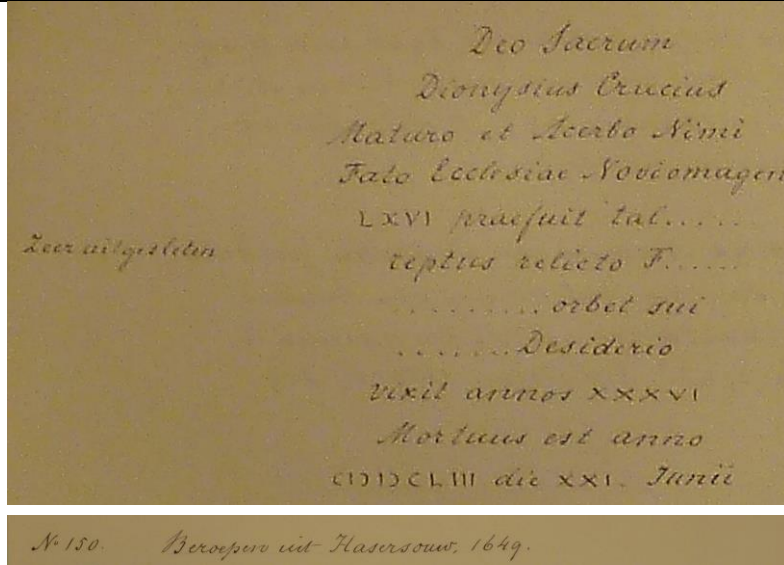 Deo Sacrum
Dionysius Crucius
Maturo et Acerbo Nimi
Fato Ecclesiae Noviomagen
LXVI praefuit tal.....
Zeer uitgesleten
reptus relicto F......
.........orbet sui
.......Desiderio
vixit annos XXXVI
Mortuus est anno
CIↃIↃCLIII die XXI. Junii
No 150. Beroepen uit Hasersouw. 1649.